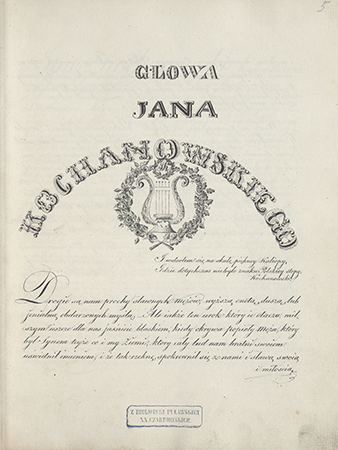 5
GŁOWA
JANA
KOCHANOWSKIEGO
I wdarłem się na skałę pięknej Kalliopy,
Gdzie dotychczas nie było znaku Polskiej stopy.
Kochanowski
Drogie są nam prochy sławnych mężów, wyższą cnotą, duszą, lub
jenialną obdarzonych myślą. Ale jakże ten urok który je otacza, mil,
szym jeszcze dla nas jaśnieie blaskiem, kiedy okrywa popioły męża, który
był synem tejże co i my Ziemi; który cały lud nam bratni swoiem
uświetnił imieniem; i że tak rzekę, spokrewnił się z nami i sławą swoią
i miłością
Z BIBLIOTEKI PUŁAWSKIEJ
XX. CZARTORYSKICH